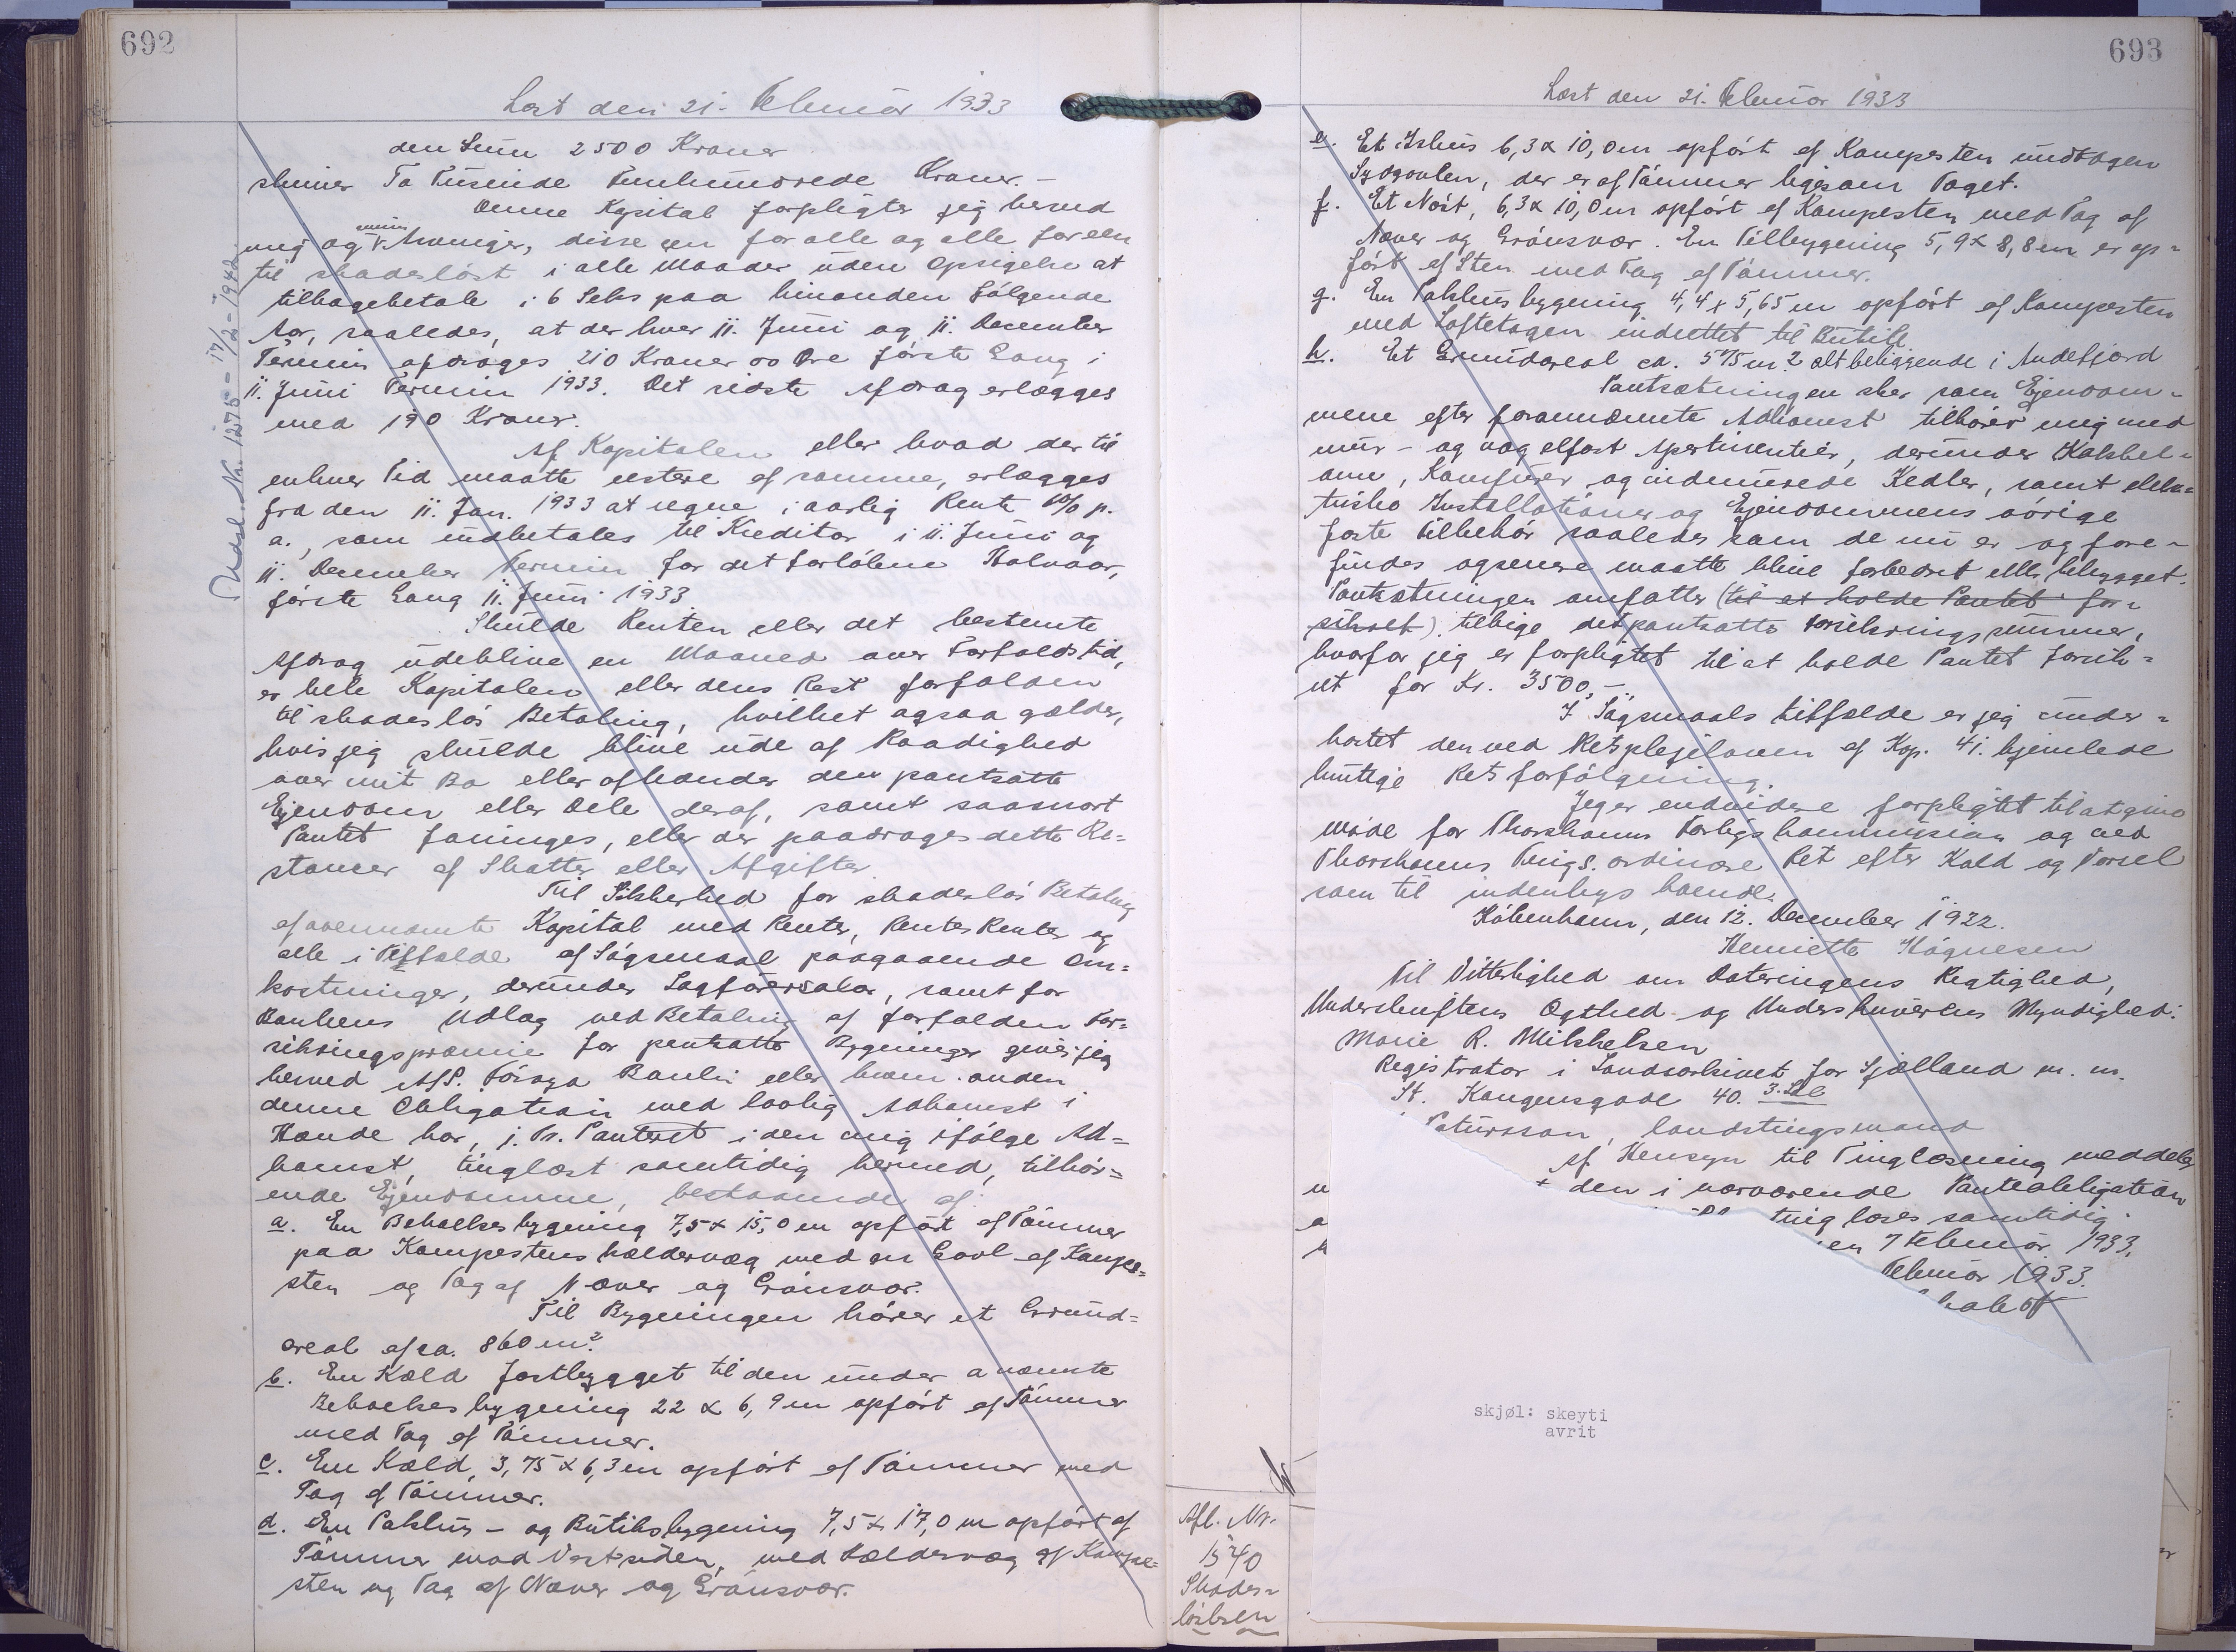 692
Læst den 21. Februar 1933
den Sum 2500 Kroner
skriver To Tusinde Femhundrede Kroner.-
Denne Kapital forpligter jeg herved
mig og mine Arvinger, disse een for alle og alle for een
til skadesløst i alle Maader uden Opsigelse at
tilbagebetale i 6 Seks paa hinanden følgende
Aar, saaledes, at der hver 11. Juni og 11. December
Termin afdrages 210 Kroner 00 Øre første Gang i
11. Juni Termin 1933. Det sidste Afdrag erlægges
med 190 Kroner.
Af Kapitalen eller hvad der til
enhver Tid maatte restere af samme, erlægges
fra den 11. Jan. 1933 at regne i aarlig Rente 6% p.
a., som indbetales til Kreditor i 11. Juni og
11. December Termin for det forløbne Halvaar,
første Gang 11. Juni 1933
Skulde Renten eller det bestemte
Afdrag udeblive en Maaned over Forfaldstid,
er hele Kapitalen eller dens Rest forfalden
til skadesløs Betaling, hvilket ogsaa gælder,
hvis jeg skulde blive ude af Raadighed
over mit Bo eller afhænder den pantsatte
Ejendom eller Dele deraf, samt saasnart
Pantet forringes, eller der paadrages dette Re=
stancer af Skatter eller Afgifter.
Til Sikkerhed for skadesløs Betaling
af ovennævnte Kapital med Renter, Renters Renter og
alle i Tilfælde af Søgsmaal paagaaende Om=
kostninger, derunder Sagførersalær, samt for
Bankens Udlæg ved Betaling af forfalden For=
sikringspræmie for pantsatte Bygninger giver jeg
herved A/S. Føroya Banki eller hvem anden
denne Obligation med lovlig Adkomst i
Hænde har, 1. Pr. Panteret i den mig ifølge Ad=
komst, tinglæst samtidig hermed, tilhør=
ende Ejendomme, bestaaende af:
a. En Beboelsesbygning 7,5 x 15,0 m opført af Tømmer
paa Kampestens Kældervæg med en Gavl af Kampe=
sten og Tag af Næver og Grønsvær.
Til Bygningen hører et Grund=
areal af ca. 860 m²
b. En Kæld fastbygget til den under a nævnte
Beboelsesbygning 22 x 6,9 m opført af Tømmer
med Tag af Tømmer.
c. En Kæld, 3,75 x 6,3 m opført af Tømmer med
Tag af Tømmer.
d. En Pakhus- og Butiksbygning 7,5 x 17,0 m opført af
Tømmer mod Vestsiden, med Kældervæg af Kampe=
sten og Tag af Næver og Grønsvær.
Udsl. Nr. 1275 - 17/2 - 1942.
693
Læst den 21. Februar 1933
e. Et Ishus 6,3 x 10,0 m opført af Kampesten undtagen
Sydgavlen, der er af Tømmer ligesom Taget.
f. Et Nøst, 6,3 x 10,0 m opført af Kampesten med Tag af
Næver og Grønsvær. En Tilbygning 5,9 x 8,8 m er op=
ført af Sten med Tag af Tømmer.
g. En Pakhusbygning 4,4 x 5,65 m opført af Kampesten
med Loftetagen indrettet til Butik
h. Et Grundareal ca. 575 m² alt beliggende i Andefjord
Pantsætningen sker som Ejendom=
mene efter forannævnte Adkomst tilhører mig med
mur- og nagelfast Apertinentier, derunder Kakkel=
ovne, Komfurer og indmurede Kedler, samt elek=
triske Installationer og Ejendommens øvrige
faste Tilbehør saaledes som de nu er og fore=
findes og senere maatte blive forbedret eller bebygget.
Pantsætningen omfatter (til at holde Pantet for=
sikret) tillige det pantsatte Forsikringssummer,
hvorfor jeg er forpligtet til at holde Pantet forsik=
ret for Kr. 3500,-.
I Søgsmaals Tilfælde er jeg under=
kastet den ved Retsplejeloven af Kap. 41. hjemlede
hurtige Retsforfølgning.
Jeg er endvidere forpligtet til at give
Møde for Thorshavns Forligskommission og ved
Thorshavns Tings. ordinære Ret efter Kald og Varsel
som til indenbys boende.
København, den 12. December 1922.
Henriette Høgnesen
Til Vitterlighed om Dateringens Rigtighed,
Underskriftens Ægthed og Underskriverens Myndighed:
Marie R. Mikkelsen
Registrator i Landsarkivet for Sjælland m. m.
St. Kongensgade 40. 3. Sal
Patursson, landstingsmand
Af Hensyn til Tinglæsning meddeles
den i nærværende Panteobligation
tinglæses samtidig.
en 7 Februar 1933.
Februar 1933.
skjøl: skeyti
avrit
Afl. Nr.
1540
Skades=
løsbrev